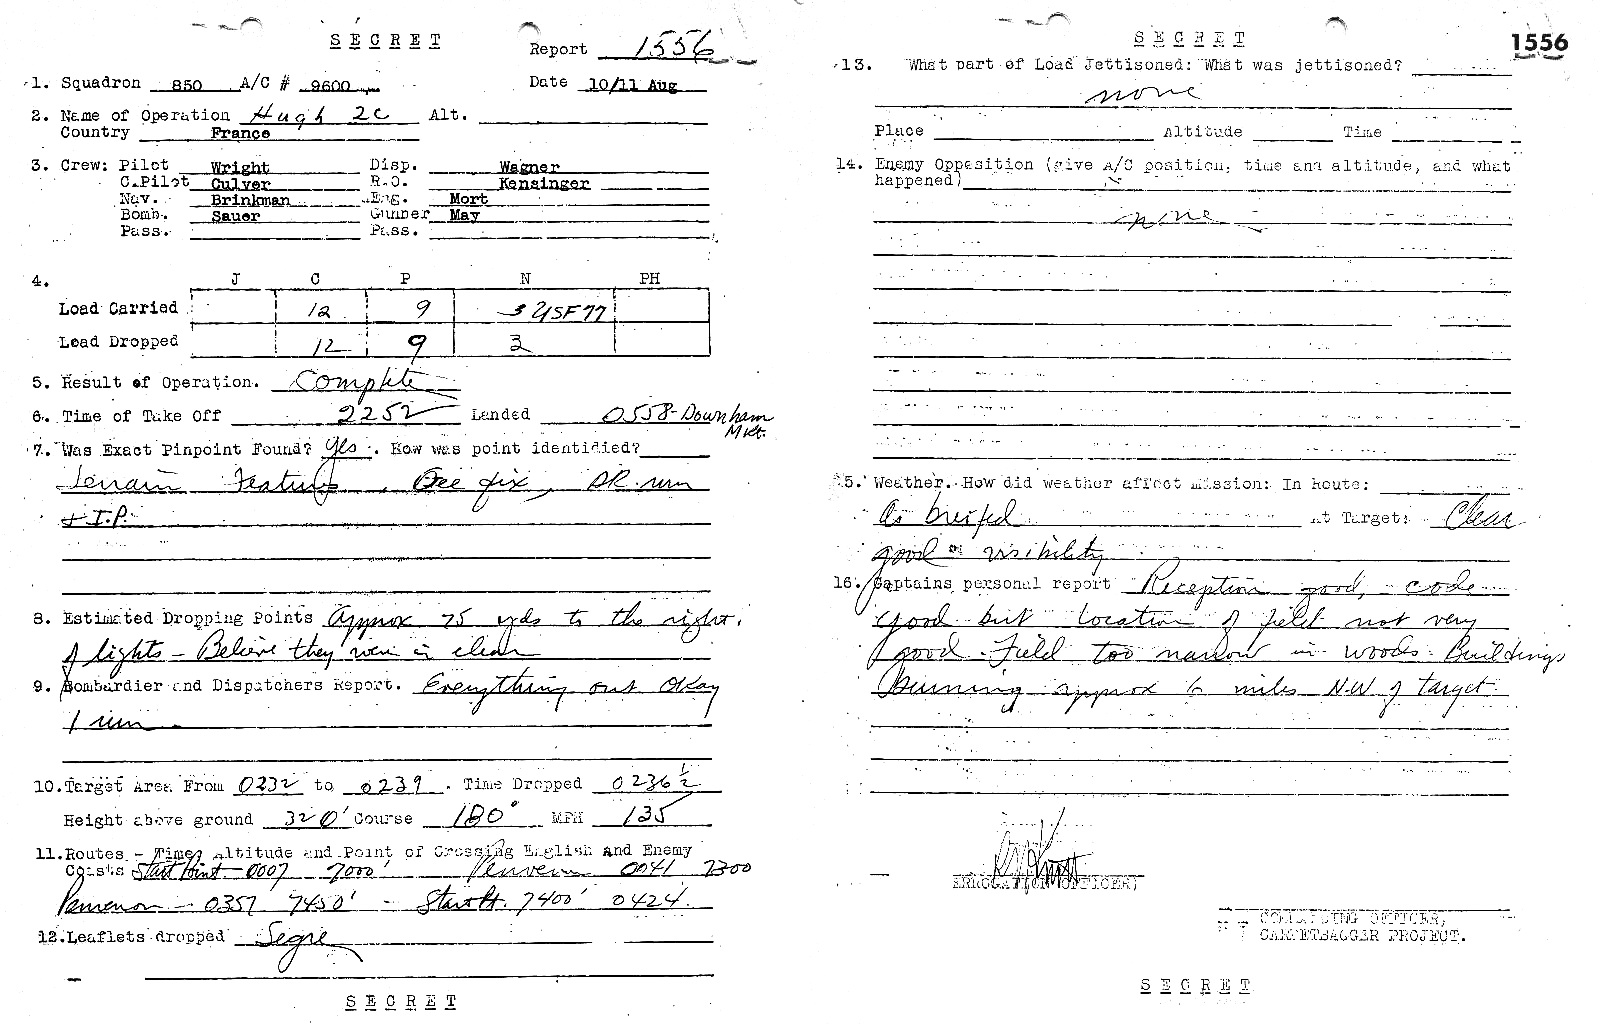 SECRET
Report 1556
1. Squadron 850 A/C # 9600 Date 10/11 Aug
2. Name of Operation Hugh 2C Alt.
Country France
3. Crew: Pilot Wright Disp. Wagner
C.Pilot Culver R.O. Kensinger
Nav. Brinkman Eng. Mort
Bomb. Sauer Gunner May
Pass. Pass.
4. J C P N PH
Load Carried 12 9 3 USF77
Load Dropped 12 9 3
5. Result of Operation. Complete
6. Time of Take Off 2252 Landed 0558-Downham
Mkt.
7. Was Exact Pinpoint Found? Yes. How was point identidied?
Terrain Features, Gee fix, DR run
+ I.P.
8. Estimated Dropping Points Approx 75 yds to the right
of lights - Believe they were in clear
9. Bombardier and Dispatchers Report. Everything out Okay
1 run
10. Target Area From 0232 to 0239. Time Dropped 0236½
Height above ground 320' Course 180° MPH 135
11. Routes - Time, Altitude and Point of Crossing English and Enemy
Coasts Start Point - 0007 7000' 0041 7300
0357 7450' - Start Pt. 7400' 0424.
12. Leaflets dropped Segre
SECRET
SECRET
1556
13. What part of Load Jettisoned: What was jettisoned?
none
Place Altitude Time
14. Enemy Opposition (give A/C position, time and altitude, and what
happened)
none
15. Weather. How did weather affect mission: In Route:
As briefed at Target: Clear
good visibility
16. Captains personal report Reception good, code
good but location of field not very
good. Field too narrow in woods. Buildings
burning approx 6 miles N.W of target
ERROGATION OFFICER)
COMMANDING OFFICER,
CARPETBAGGER PROJECT.
SECRET